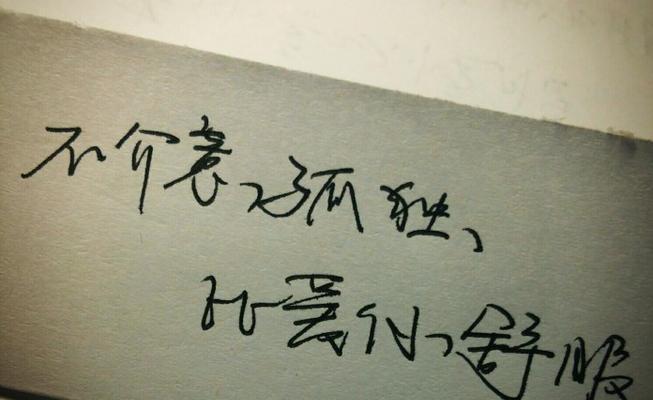 不介意孤独、
比爱你舒服